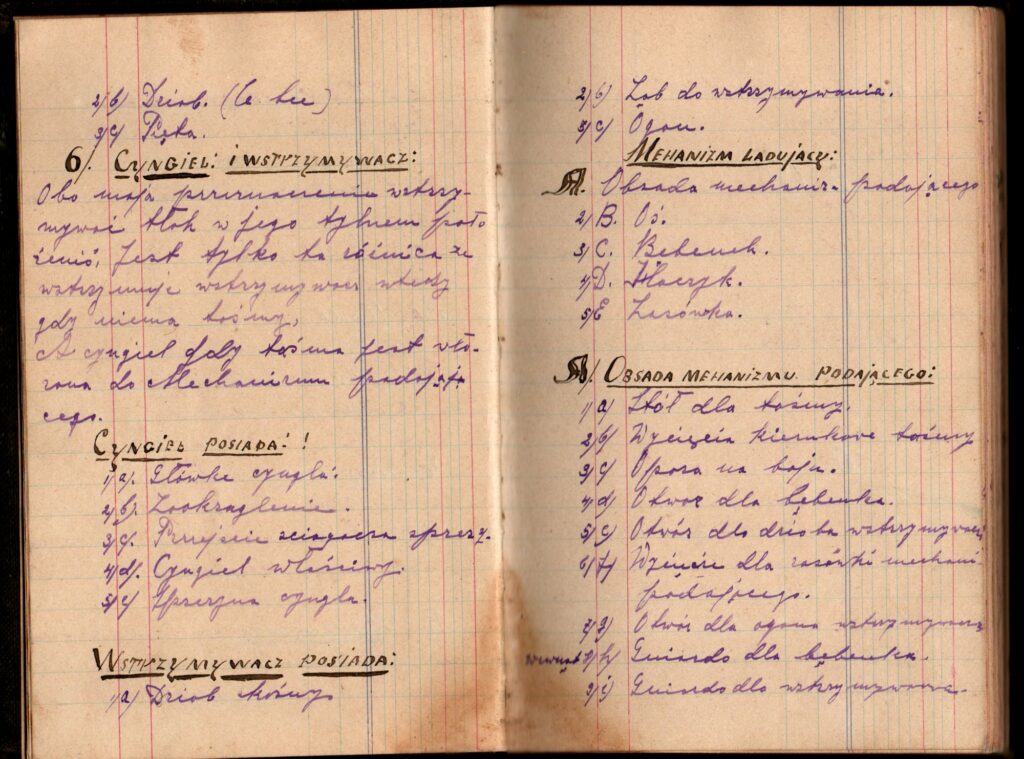 2/ b/ Dziob. (le bec)
3/ c/ Pięta.
6/. CYNGIEL: I WSTRZYMYWACZ:
Obo maja przeznaczenie wstrzy-
mywać tłok w jego tylnem poło
żeniu, Jest tylko ta różnica że
wstrzymuje wstrzymywacz wtedy
gdy niema taśmy,
A cyngiel gdy taśma jest wło-
żona do Mechanizmu podają-
cego.
CYNGIEL POSIADA: !
1/ a/. Główke cyngla:
2/ b/. Zaokrąglenie.
3/ c/. Przejście sciągacza spręż.
4/ d/. Cyngiel właściwy.
5/ e/ Sprezyna cyngla.
WSTRZYMYWACZ POSIADA:
1/ a/ Dziob taśmy
2/ b/ Ząb do wstrzymywania.
3/ c/ Ogon.
MEHANIZM ŁADUJĄCY:
A. Obsada mechaniz. podającego
2/ B. Oś.
3/ C. Bębenek.
4/ D. Haczyk.
5/ E Zasówka.
A/. OBSADA MEHANIZMU PODAJĄCEGO:
1/ a/ Stół dla taśmy.
2/ b/ Wycięcia kierukove taśmy
3/ c/ Opora na boju.
4/ d/ Otwor dla bębenka.
5/ e/ Otwór dla dzioba wstrzymywacz
6/ f/ Wycięcie dla zasówki mechani
podającego.
7/ g/ Otwór dla ogona wstrzymywacza
8/ h/ Gniazdo dla bębenka.
9/ i/ Gniazdo dla wstrzymywacza.